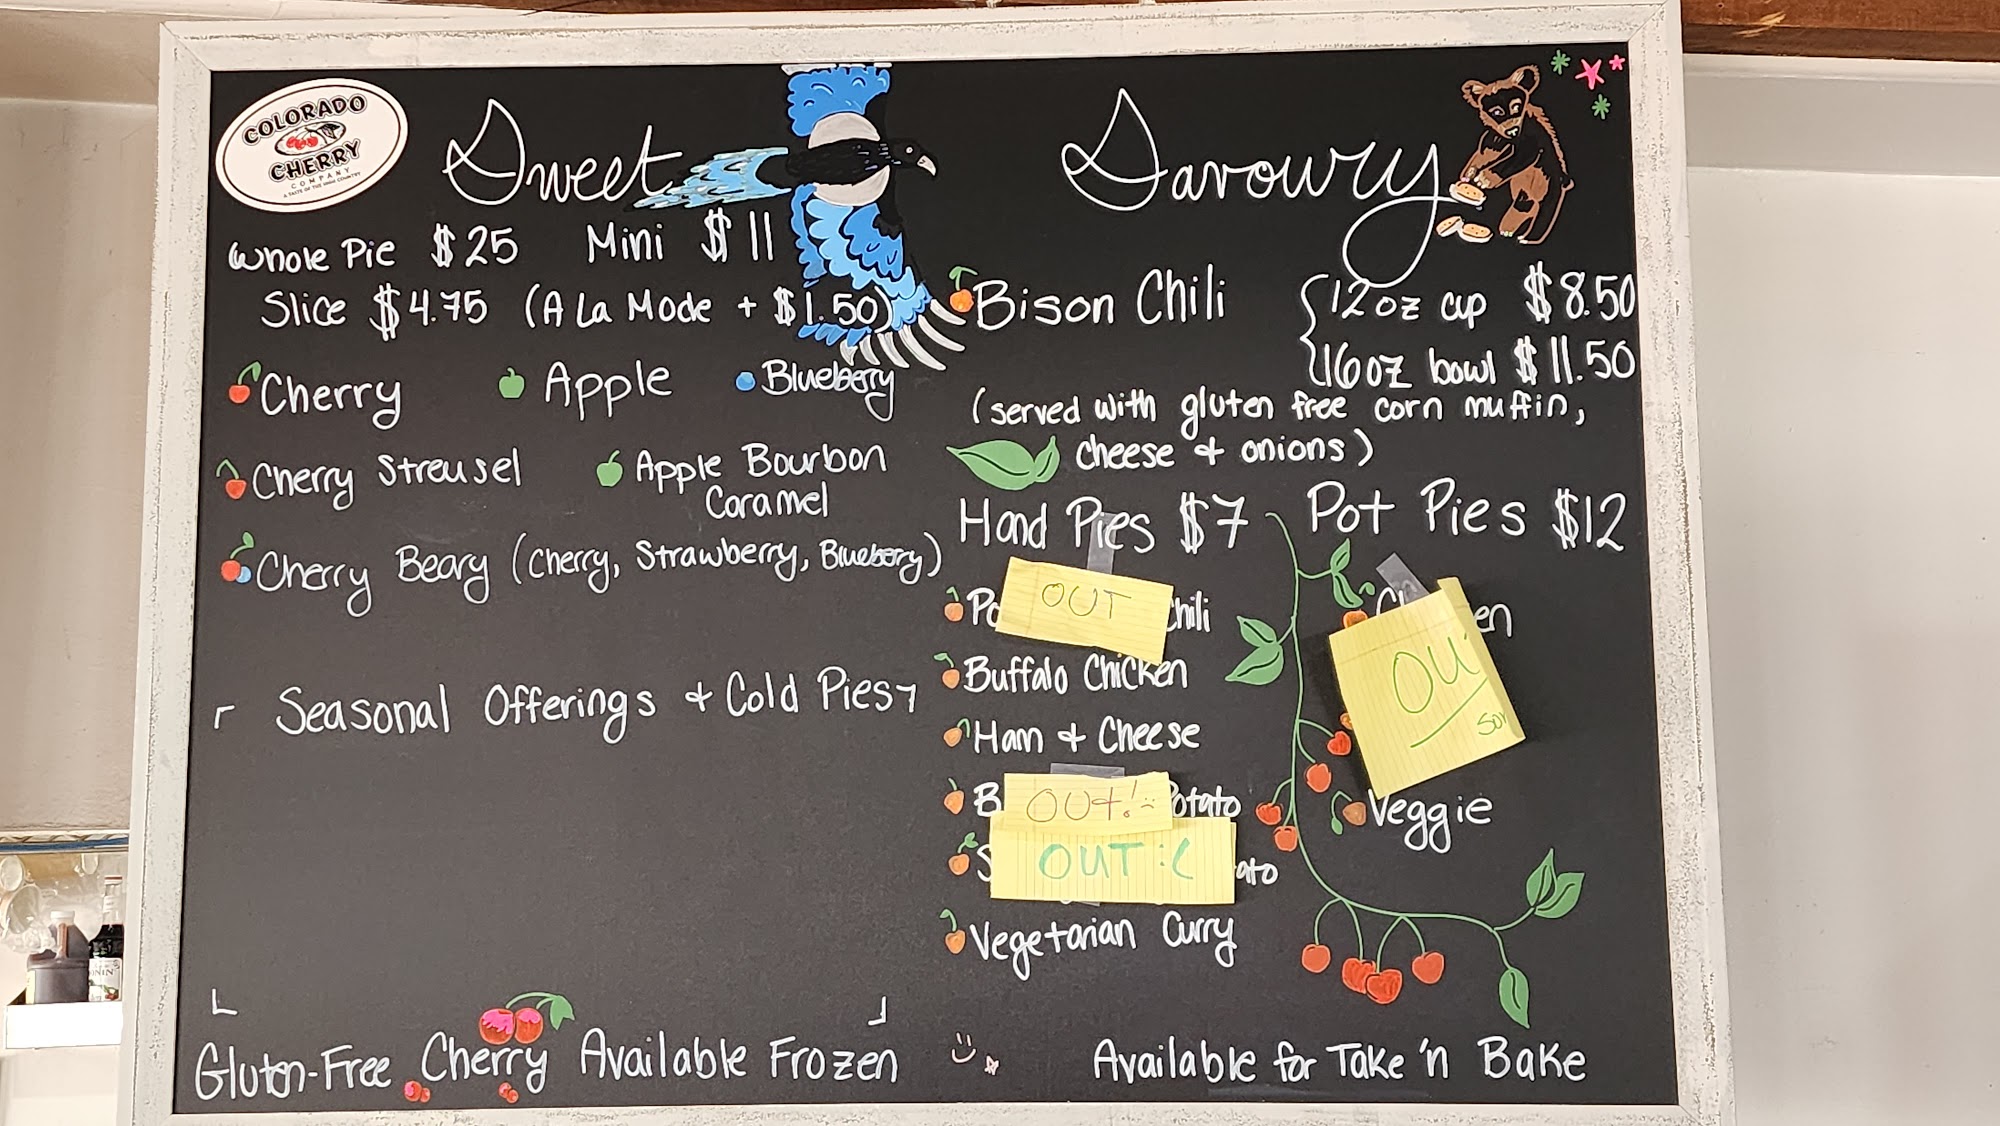 COLORADO
CHERRY
COMPANY
A TASTE OF THE HIGH COUNTRY
Sweet
Whole Pie $25 Mini $11
Slice $4.75 (A La Mode + $1.50)
Cherry Apple Blueberry
Cherry Streusel Apple Bourbon
Caramel
Cherry Beary (Cherry, Strawberry, Blueberry)
Seasonal Offerings + Cold Pies
Gluten-Free Cherry Available Frozen
Savoury
Bison Chili 12oz cup $8.50
16oz bowl $11.50
(served with gluten free corn muffin,
cheese + onions)
Hand Pies $7
OUT
hili
Buffalo Chicken
Ham + Cheese
B OUt! :( otato
S OUT :( ato
Vegetarian Curry
Pot Pies $12
Ch en
OU
Veggie
Available for Take 'n Bake